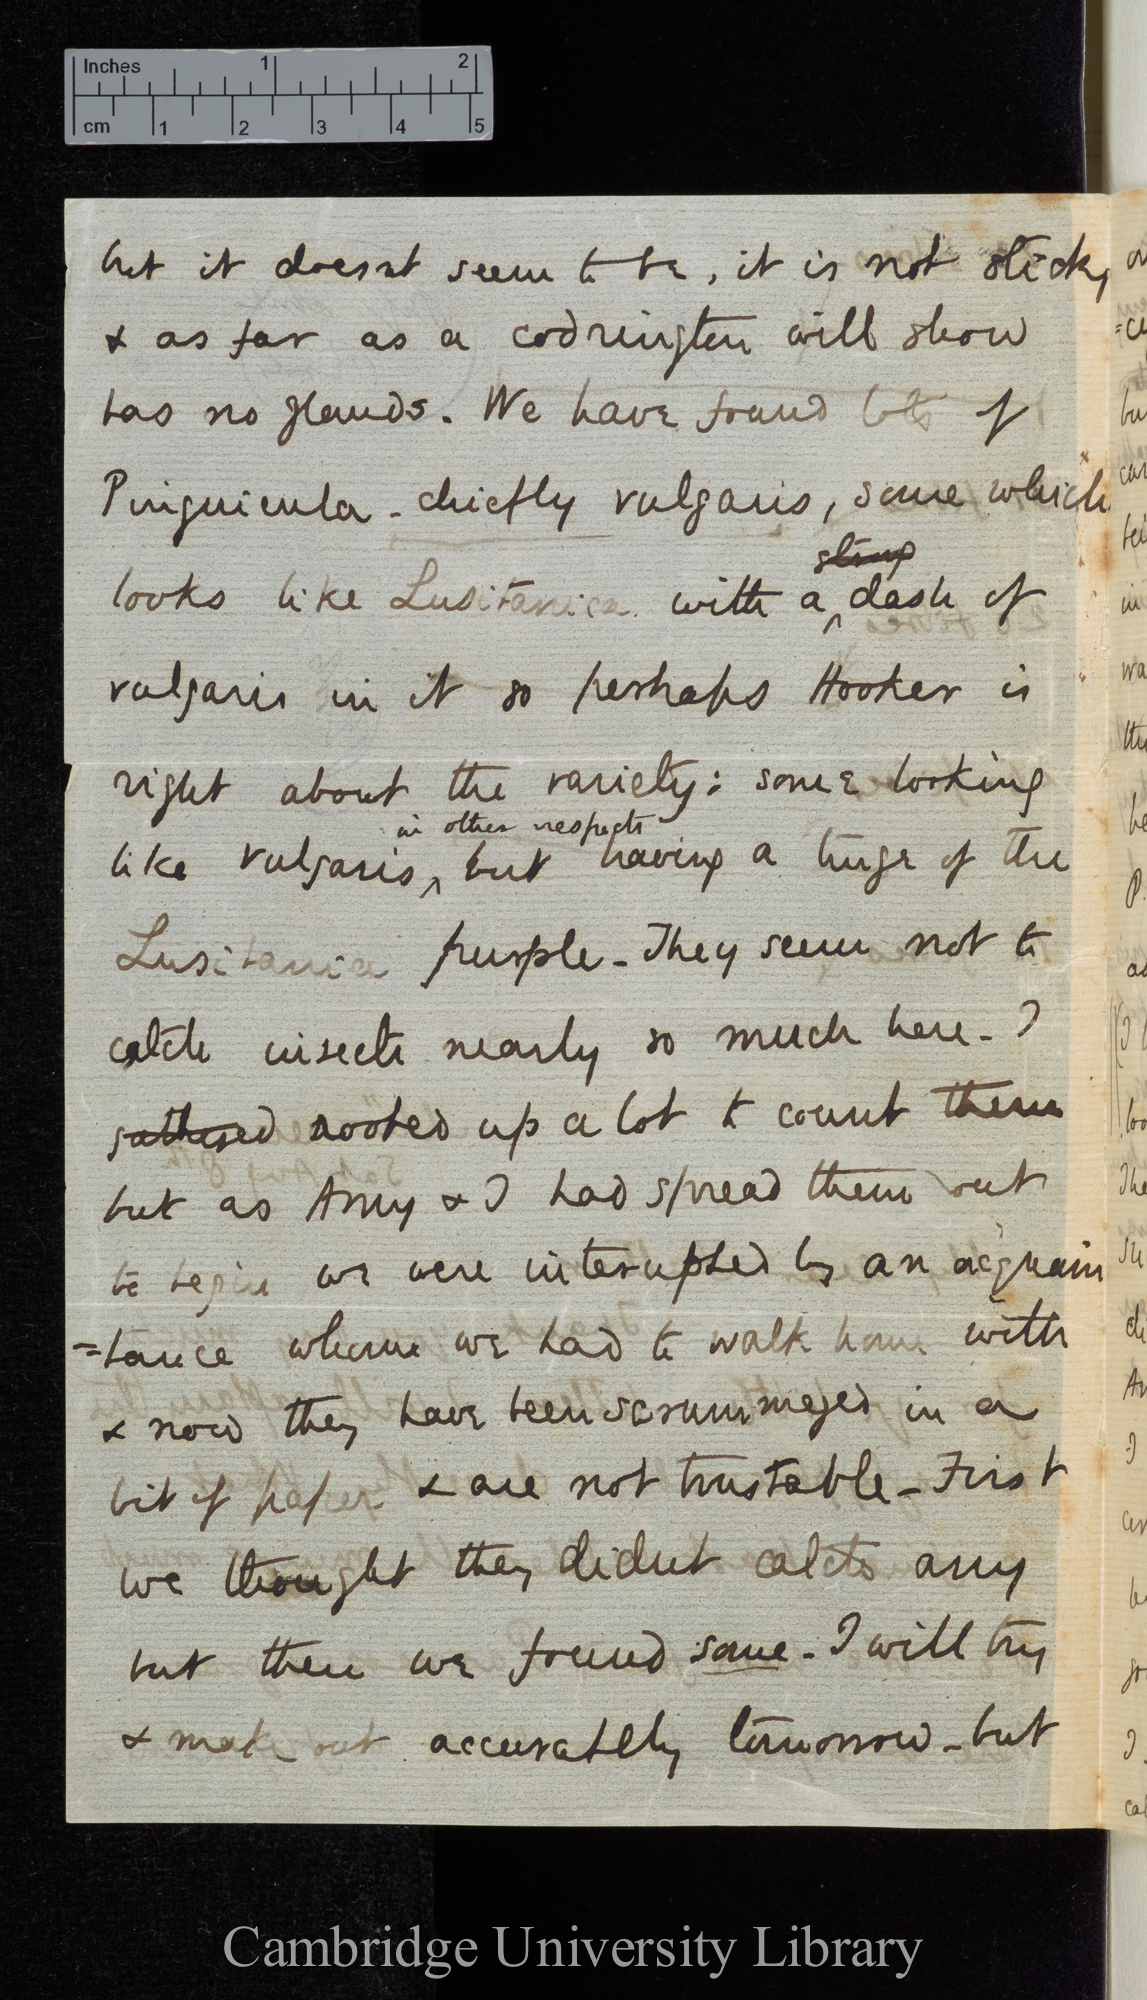 Inches 1 2
cm 1 2 3 4 5
but it doesnt seem to be, it is not sticky
& as far as a codrington will show
has no glands. We have found lots of
Pinguicula - chiefly vulgaris, some which
strong
looks like Lusitanica with a dash of
vulgaris in it so perhaps Hooker is
right about the variety: some looking
in other respects
like vulgaris, but having a tinge of the
Lusitania purple - They seem not to
catch insects nearly so much here - I
gathered rooted up a lot to count them
but as Amy & I had spread them out
to begin we were interupted by an acquain
=tance whome we had to walk home with
& now they have been scrummeged in a
bit of paper & are not trustable - First
we thought they didnt catch any
but then we found some - I will try
& make out accurately tomorrow - but
Cambridge University Library